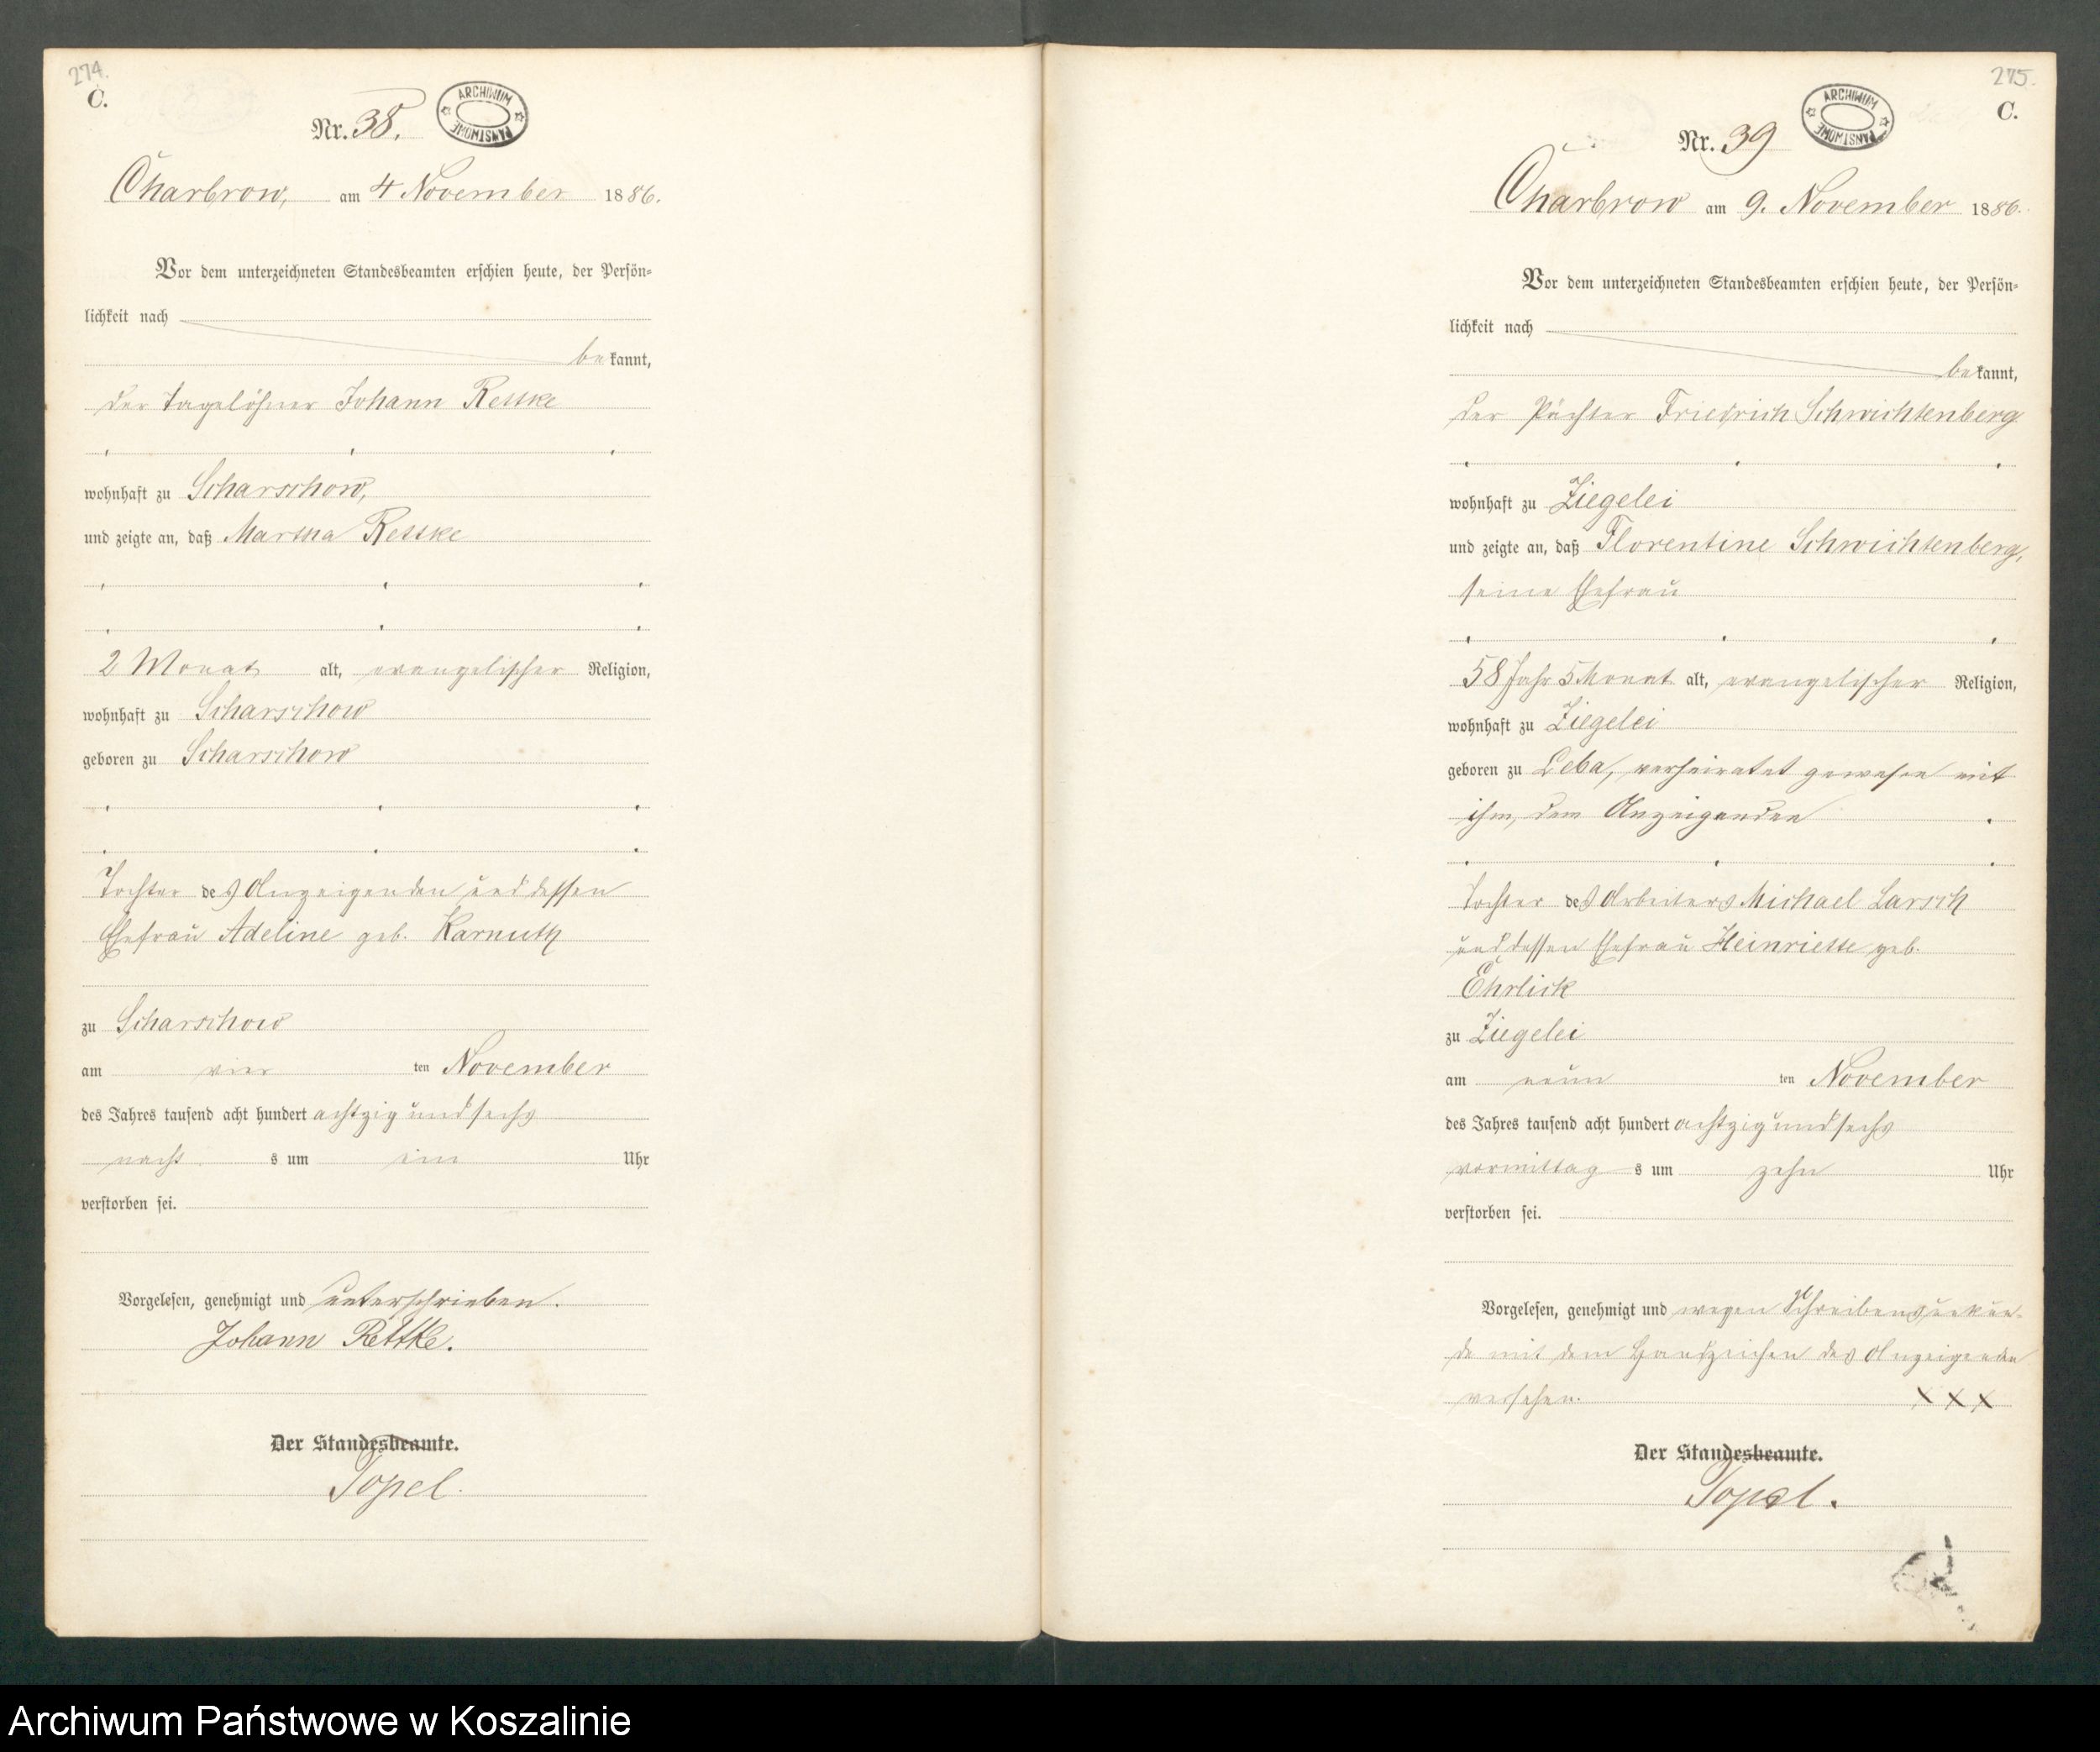 274.
C.
ARCHIWUM PAŃSTWOWE
Nr. 38.
Charbrow, am 4 November 1886.
Vor dem unterzeichneten Standesbeamten erschien heute, der Persön-
lichkeit nach
bekannt,
der Tagelöhner Johann Rettke
wohnhaft zu Scharschow,
und zeigte an, daß Martha Rettke
2 Monat alt, evangelischer Religion,
wohnhaft zu Scharschow
geboren zu Scharschow
Tochter des Anzeigenden und dessen
Ehefrau Adeline geb. Karnuth
zu Scharschow
am vier ten November
des Jahres tausend acht hundert achtzig und sechs
nacht s um ein Uhr
verstorben sei.
Vorgelesen, genehmigt und unterschrieben.
Johann Rettke.
Der Standesbeamte.
Topel.
275.
C.
ARCHIWUM PAŃSTWOWE
Nr. 39
Charbrow am 9. November 1886.
Vor dem unterzeichneten Standesbeamten erschien heute, der Persön-
lichkeit nach
bekannt,
der Pächter Friedrich Schwichtenberg
wohnhaft zu Ziegelei
und zeigte an, daß Florentine Schwichtenberg,
seine Ehefrau
58 Jahr 5 Monat alt, evangelischer Religion,
wohnhaft zu Ziegelei
geboren zu Leba, verheiratet gewesen mit
ihm, dem Anzeigenden
Tochter des Arbeiters Michael Larsch
und dessen Ehefrau Heinriette geb.
Ehrlick
zu Ziegelei
am neun ten November
des Jahres tausend acht hundert achtzig und sechs
vormittag s um zehn Uhr
verstorben sei.
Vorgelesen, genehmigt und wegen Schreibensunkun-
de mit dem Handzeichen des Anzeigenden
versehen. XXX
Der Standesbeamte.
Topel.
Archiwum Państwowe w Koszalinie